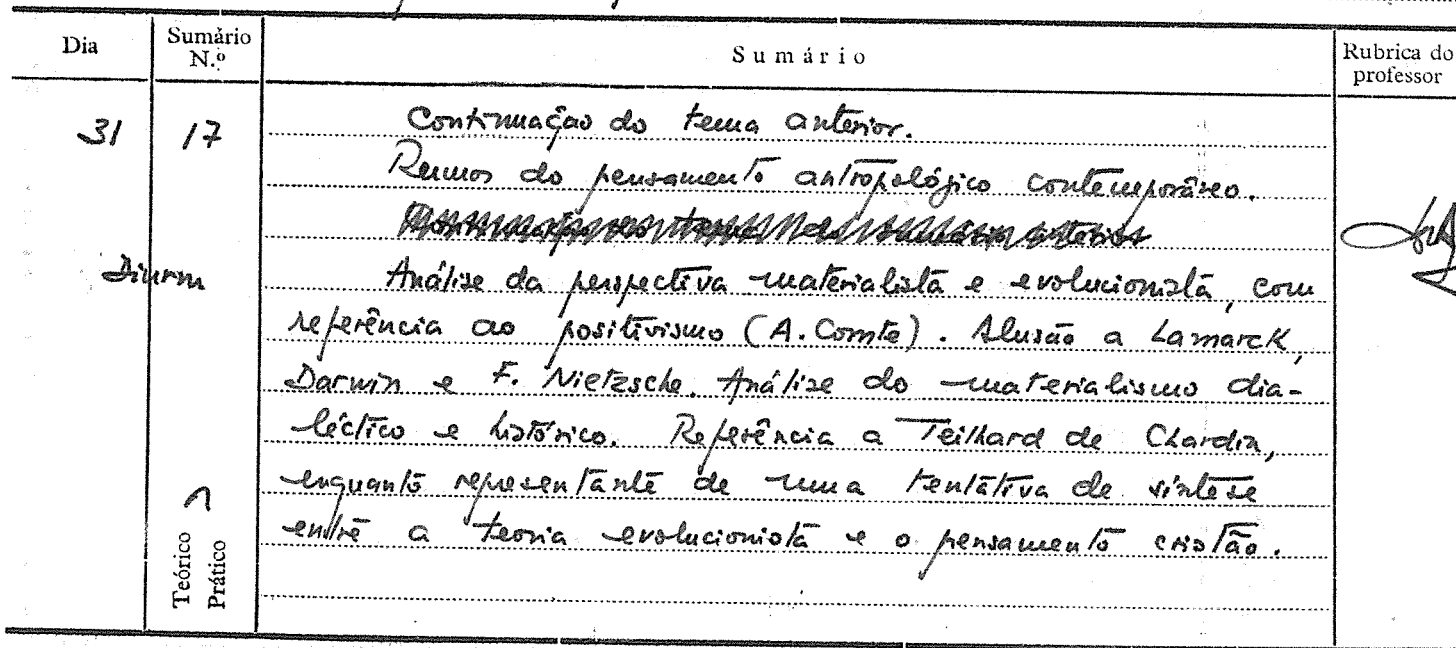 Dia Sumário N.º Sumário Rubrica do professor
31 17 Continuação do tema anterior.
Rumos do pensamento antropológico contemporâneo.
Diurno Análise da perspectiva materialista e evolucionista, com
referência ao positivismo (A. Comte). Alusão a Lamarck,
Darwin e F. Nietzsche. Análise do materialismo dia-
léctico e histórico. Referência a Teilhard de Chardin,
enquanto representante de uma tentativa de síntese
entre a teoria evolucionista e o pensamento cristão.
Teórico
Prático